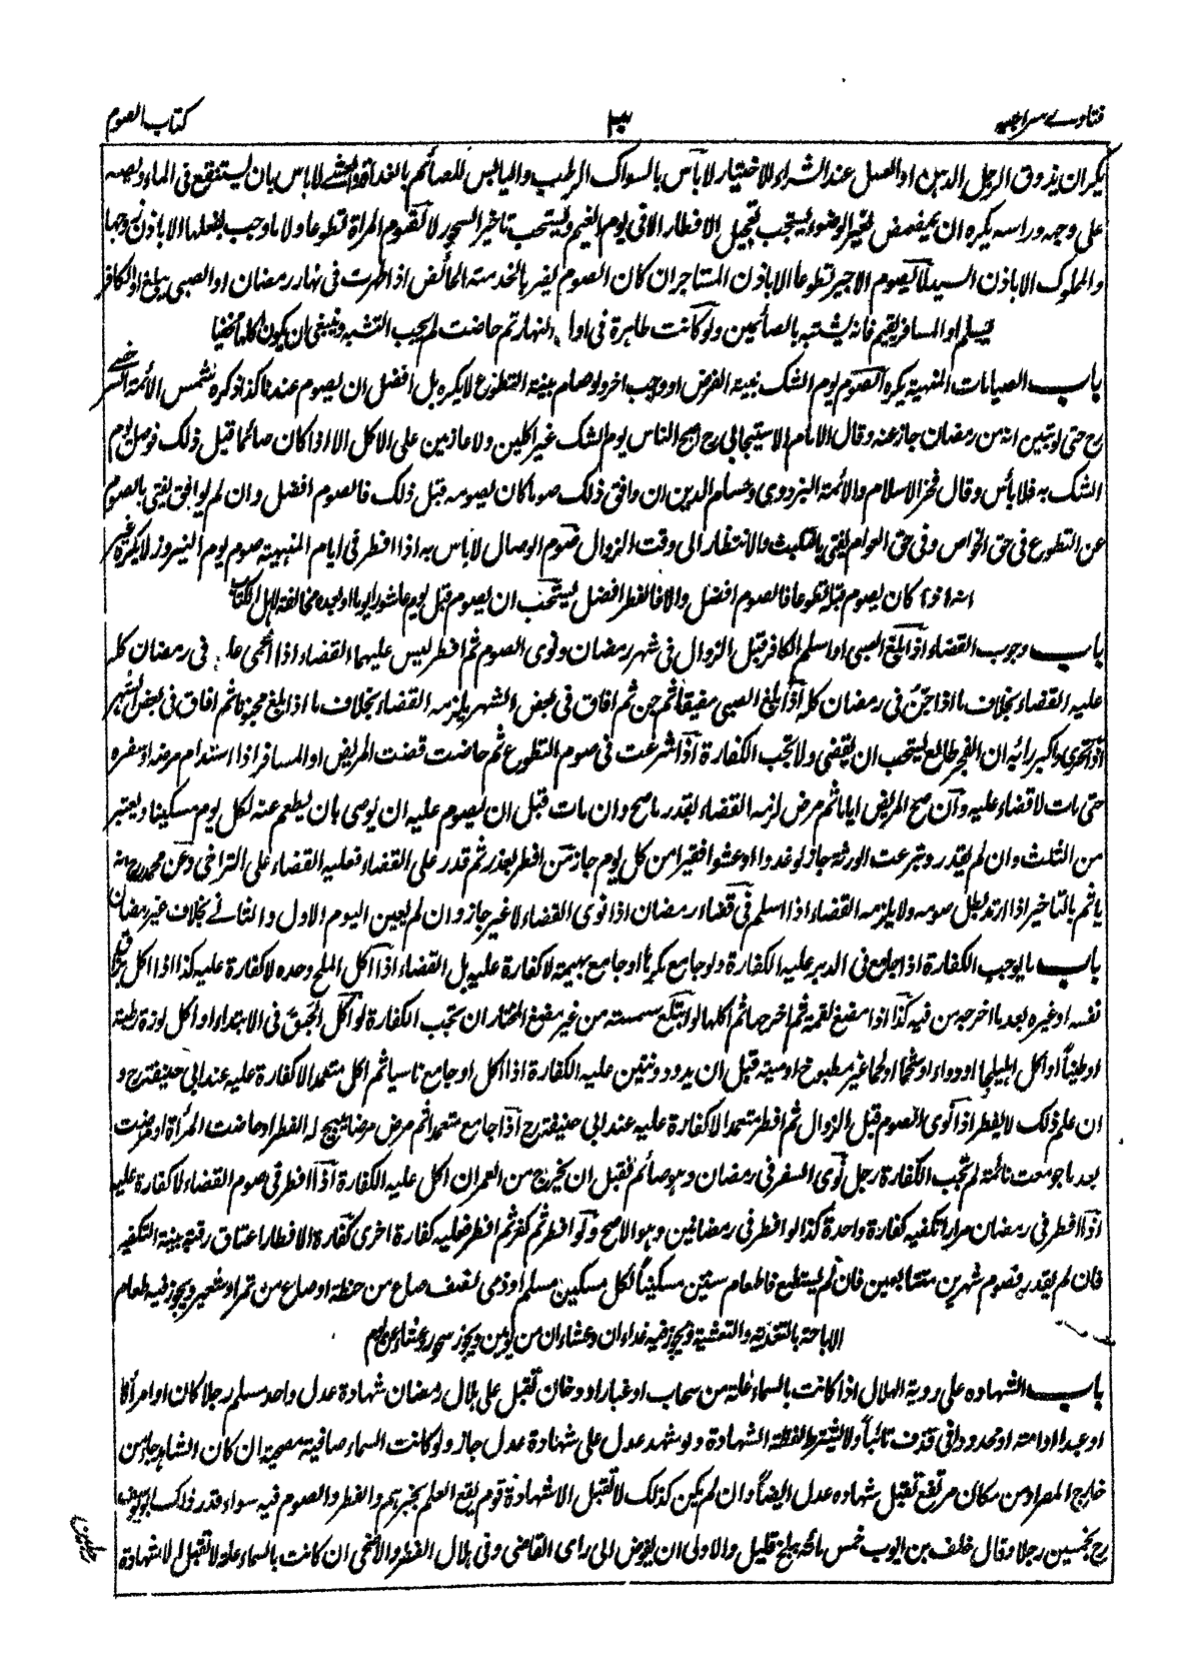 فتاوے سراجیہ
۳۰
کتاب الصوم
یکرہ ان یذوق الرجل الدہن او العسل عند الشراء للاختیار لا بأس بالسواک الرطب والیابس للصائم بالغداة والعشے لا باس بان یستنقع فی الماء ویصبہ
علی وجہہ وراسہ یکرہ ان یمضمض لغیر الوضوء یستحب تعجیل الافطار الا فی یوم الغیم ویستحب تاخیر السحور لا تصوم المرأة تطوعا ولا ما وجب بفعلہا الا باذن زوجہا
والمملوک الا باذن السید لا یصوم الاجیر تطوعا الا باذن المستاجر ان کان الصوم یضر بالخدمة الحائض اذا طہرت فی نہار رمضان او الصبی یبلغ او الکافر
یسلم او المسافر یقیم فانہ یتشبہ بالصائمین ولو کانت طاہرة فی اول النہار ثم حاضت لم یجب التشبہ وینبغی ان یکون اکلہا مخفیا
باب الصیامات المنہیة یکرہ الصوم یوم الشک بنیة الفرض او واجب اخر ولو صام بنیة التطوع لا یکرہ بل افضل ان یصوم عندنا کذا ذکرہ شمس الأئمة السرخسے
رح حتی لو تبین انہ من رمضان جاز عنہ وقال الامام الاسبیجابی رح اصبح الناس یوم الشک غیر اکلین ولا عازمین علی الاکل الا اذا کان صائما قبل ذلک فوصل یوم
الشک بہ فلا بأس وقال فخر الاسلام والأئمة البزدوی وحسام الدین ان وافق ذلک صوما کان یصومہ قبل ذلک فالصوم افضل وان لم یوافق یفتی بالصوم
عن التطوع فی حق الخواص وفی حق العوام یفتی بالتلبث والانتظار الی وقت الزوال صوم الوصال لا باس بہ اذا افطر فی ایام المنہیة صوم یوم النیروز لا یکرہ غیر
انہ اذا کان یصوم قبلہ تطوعا فالصوم افضل والا فالفطر افضل یستحب ان یصوم قبل یوم عاشوراء یوما او بعدہ مخالفة لاہل الکتاب
باب وجوب القضاء اذا بلغ الصبی او اسلم الکافر قبل الزوال فی شہر رمضان ونوی الصوم ثم افطر لیس علیہما القضاء اذا اغمی علیہ فی رمضان کلہ
علیہ القضاء بخلاف ما اذا جن فی رمضان کلہ اذا بلغ الصبی مفیقا ثم جن ثم افاق فی بعض الشہر یلزمہ القضاء بخلاف ما اذا بلغ مجنونا ثم افاق فی بعض الشہر
اذا تحری واکبر رائہ ان الفجر طالع یستحب ان یقضی ولا تجب الکفارة اذا شرعت فی صوم التطوع ثم حاضت قضت المریض او المسافر اذا استدام مرضہ او سفرہ
حتی مات لا قضاء علیہ وان صح المریض ایاما ثم مرض لزمہ القضاء بقدر ما صح وان مات قبل ان یصوم علیہ ان یوصی بان یطعم عنہ لکل یوم مسکینا ویعتبر
من الثلث وان لم یقدر وتبرعت الورثة جاز لو غدوا او عشوا فقیرا من کل یوم جاز من افطر بعذر ثم قدر علی القضاء فعلیہ القضاء علی التراخی وعن محمد رح انہ
یاثم بالتاخیر اذا ارتد بطل صومہ ولا یلزمہ القضاء اذا اسلم فی قضاء رمضان اذا نوی القضاء لا غیر جاز وان لم یعین الیوم الاول والثانے بخلاف غیر رمضان
باب ما یوجب الکفارة اذا جامع فی الدبر علیہ الکفارة ولو جامع مکرہا او جامع بہیمة لا کفارة علیہ بل القضاء اذا اکل الملح وحدہ لا کفارة علیہ کذا اذا اکل
نفسہ او غیرہ بعد ما اخرجہ من فیہ کذا اذا مضغ لقمة ثم اخرجہا ثم اکلہا لو ابتلع سمسمة من غیر مضغ المختار ان تجب الکفارة لو اکل الحمق فی الابتداء او اکل لوزة رطبة
او طینا او اکل اہلیلجا او دواء او شحما او لحما غیر مطبوخ او میتة قبل ان یدود وتنتن علیہ الکفارة اذا اکل او جامع ناسیا ثم اکل متعمدا لا کفارة علیہ عند ابی حنیفة رح و
ان علم ذلک لا یفطر اذا نوی الصوم قبل الزوال ثم افطر متعمدا لا کفارة علیہ عند ابی حنیفة رح اذا جامع متعمدا ثم مرض مرضا یبیح لہ الفطر او حاضت المرأة او مرضت
بعد ما جومعت نائمة لم تجب الکفارة رجل نوی السفر فی رمضان وہو صائم فقبل ان یخرج من العمران اکل علیہ الکفارة اذا افطر فی صوم القضاء لا کفارة علیہ
اذا افطر فی رمضان مرارا تکفیہ کفارة واحدة کذا لو افطر فی رمضانین وہو الاصح ولو افطر ثم کفر ثم افطر فعلیہ کفارة اخری کفارة الافطار اعتاق رقبة بنیة التکفیر
فان لم یقدر فصوم شہرین متتابعین فان لم یستطع فاطعام ستین مسکینا لکل مسکین مسلم او ذمی نصف صاع من حنطة او صاع من تمر او شعیر ویجوز فیہ طعام
الاباحة بالتغدیة والتعشیة ویجوز فیہ غداءان وعشاءان من یومین ویجوز سحور وعشاء من یوم
باب الشہادہ علی رویة الہلال اذا کانت بالسماء علة من سحاب او غبار او دخان تقبل علی ہلال رمضان شہادة عدل واحد مسلم رجلا کان او امرأة
او عبدا او امة او محدودا فی قذف تائبا ولا یشترط لفظة الشہادة ولو شہد عدل علی شہادة عدل جاز ولو کانت السماء صافیة مصحیة ان کان الشاہد جاء من
خارج المصر او من مکان مرتفع تقبل شہادہ عدل ایضا وان لم یکن کذلک لا تقبل الا شہادة قوم یقع العلم بخبرہم والفطر والصوم فیہ سواء قدر ذلک ابو یوسف
رح بخمسین رجلا وقال خلف بن ایوب خمس مائة ببلخ قلیل والاولی ان یفوض الی رای القاضی وفی ہلال الفطر والاضحی ان کانت بالسماء علة لا تقبل الا شہادة
رجلین